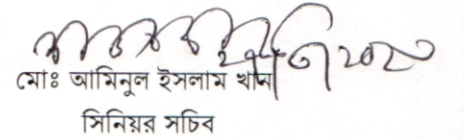 মোঃ আমিনুল ইসলাম খান
সিনিয়র সচিব